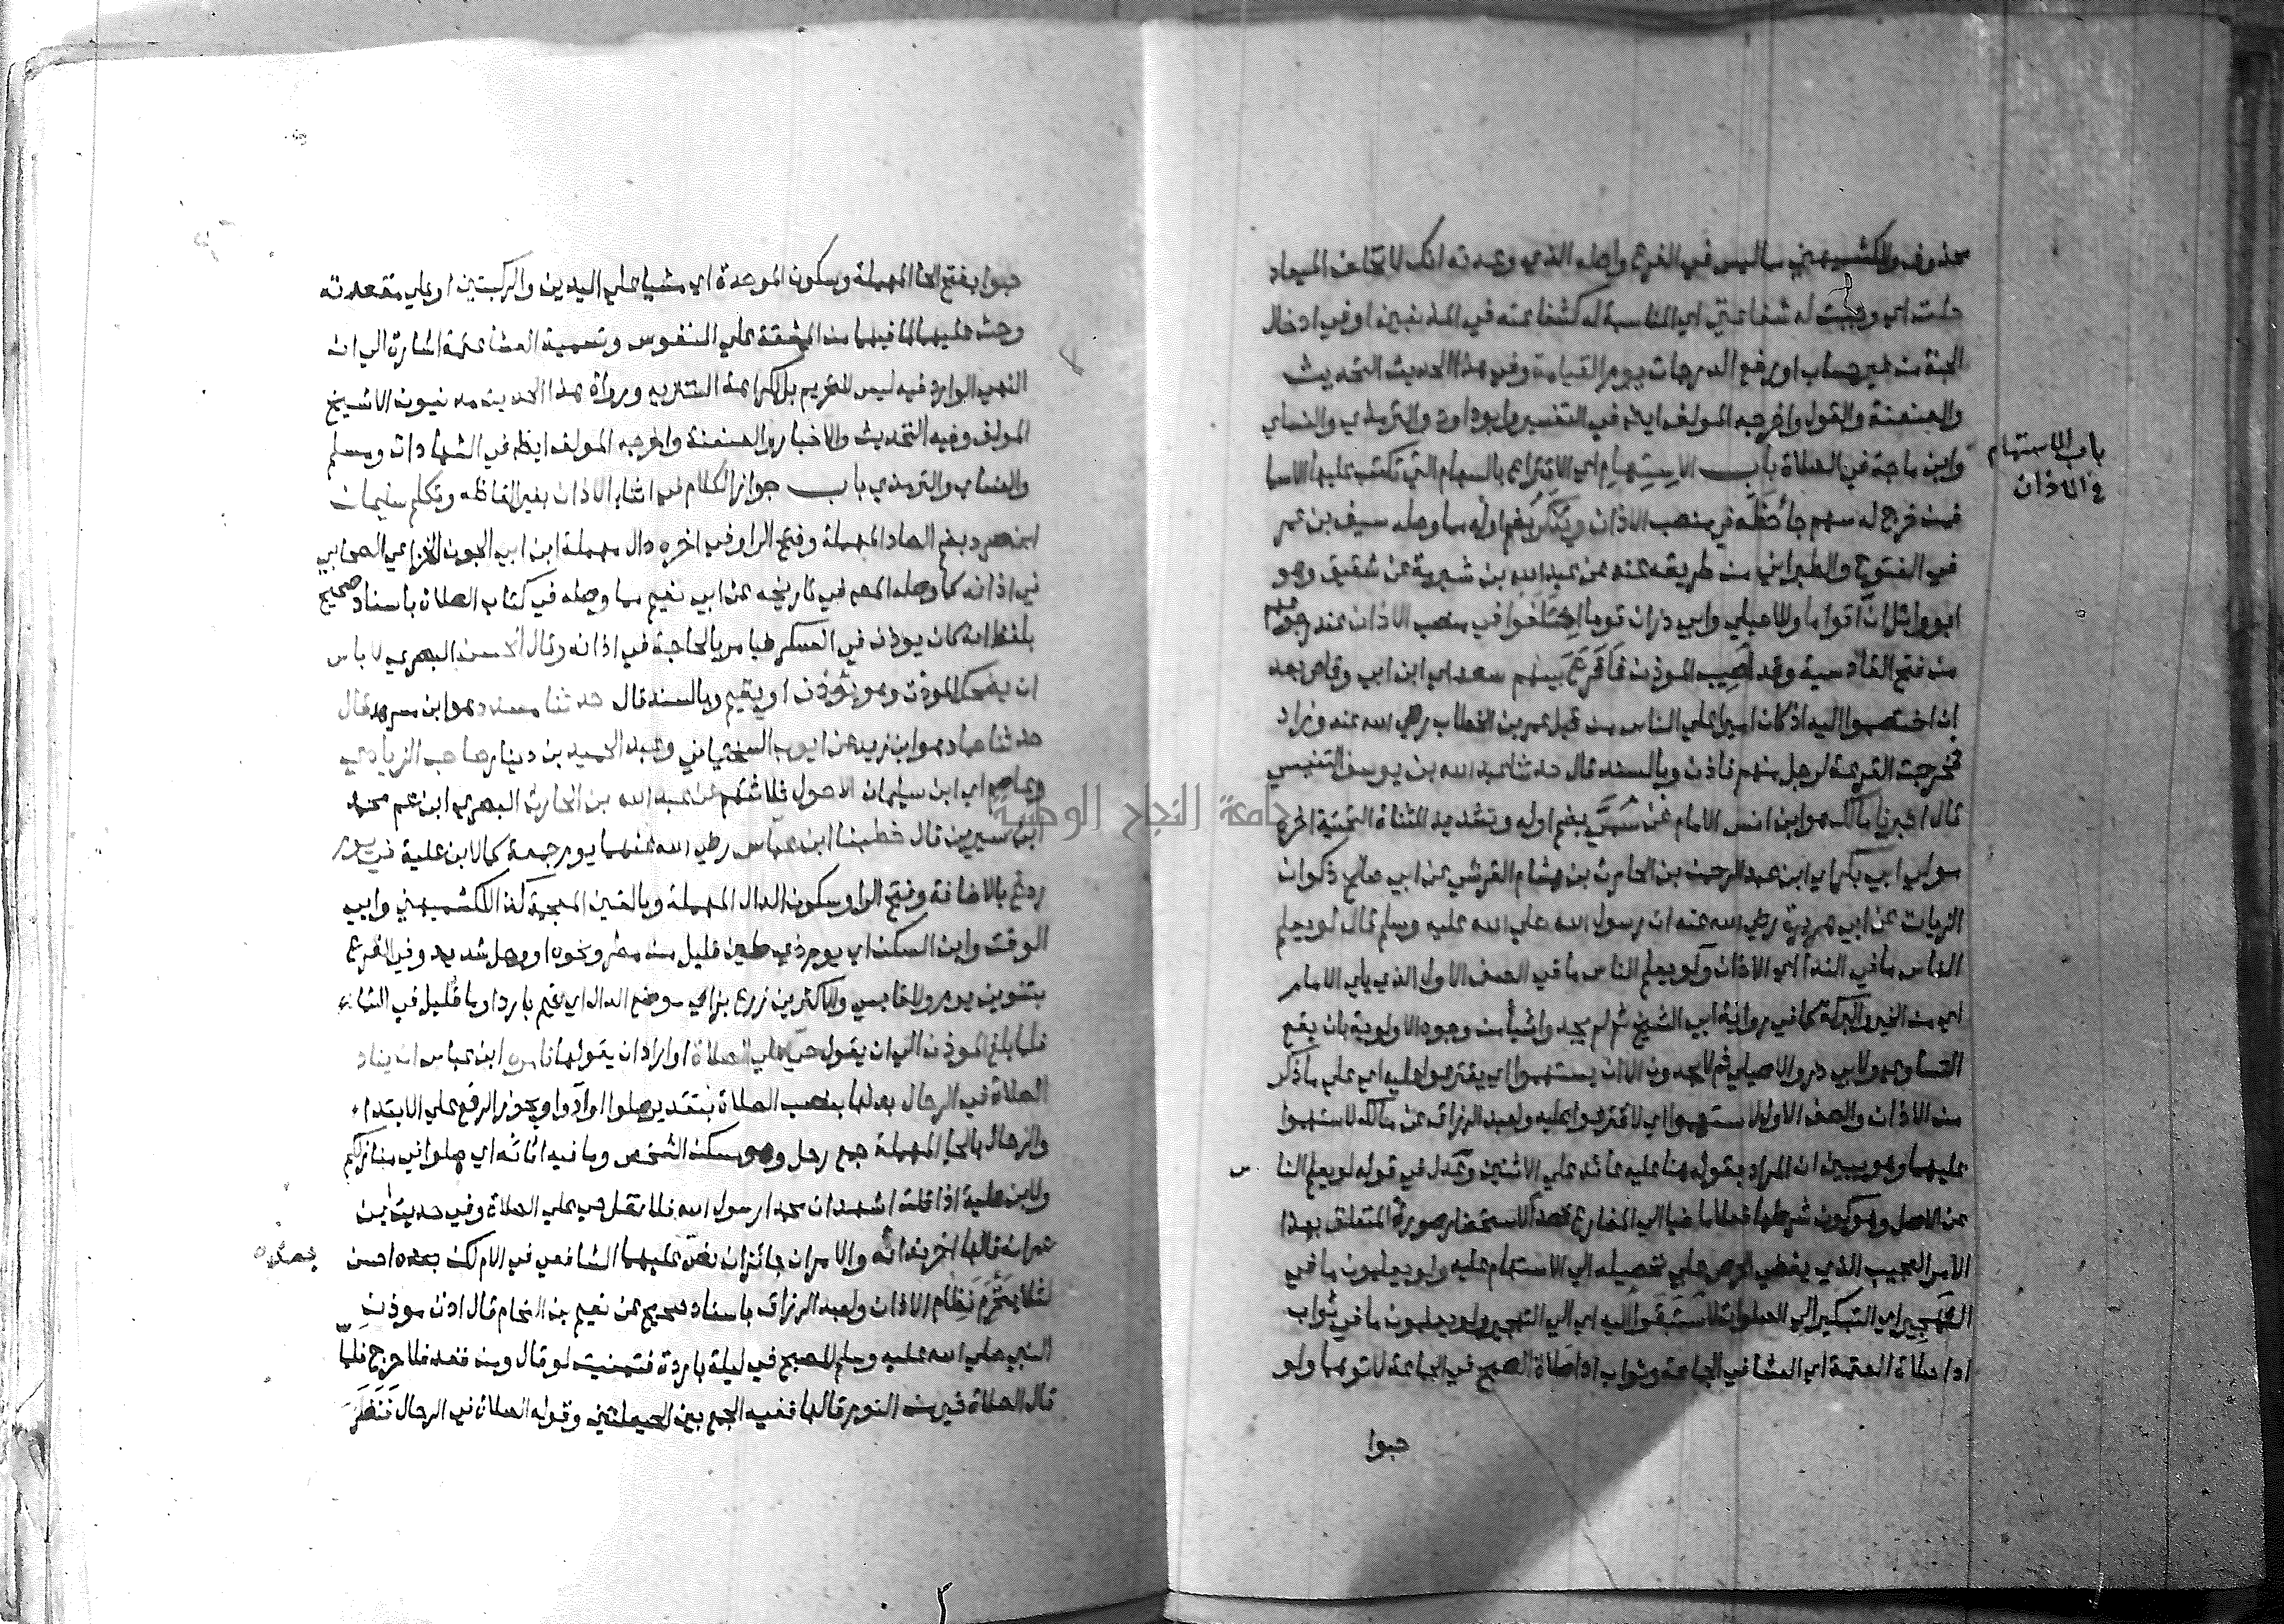 محذوف وللكشميهني مما ليس في الفرع واصله الذي وعدته انك لا تخلف الميعاد
حلت اي وجبت له شفاعتي اي المناسبة له كشفاعته في المذنبين او في ادخال
الجنة من غير حساب او رفع الدرجات يوم القيامة وفي هذا الحديث التحديث
والعنعنة والقول واخرجه المولف ايضا في التفسير وابو داود والترمذي والنساي
وابن ماجة في الصلاة باب الاستهام اي الاقتراع بالسهام التي تكتب عليها الاسما
باب الاستهام
في الاذان
فمن خرج له سهم جا حظه في منصب الاذان ويذكر بضم اوله مما وصله سيف بن عمر
في الفتوح والطبراني من طريقه عنه عن عبد الله بن شبرمة عن شقيق وهو
ابو وائل ان اقواما وللاصيلي وابي ذر ان قوما اختلفوا في منصب الاذان عند رجوعهم
من فتح القادسية وقد اصيب الموذن فاقرع بينهم سعد اي ابن ابي وقاص بعد
ان اختصموا اليه اذ كان اميرا علي الناس من قبل عمر بن الخطاب رضي الله عنه وزاد
فخرجت القرعة لرجل منهم فاذن وبالسند قال حدثنا عبد الله بن يوسف التنيسي
قال اخبرنا مالك هو ابن انس الامام عن سمي بضم اوله وتشديد المثناة التحتية اخره
مولي ابي بكر اي ابن عبد الرحمن بن الحارث بن هشام القرشي عن ابي صالح ذكوان
الزيات عن ابي هريرة رضي الله عنه ان رسول الله صلي الله عليه وسلم قال لو يعلم
الناس ما في الندا اي الاذان ولو يعلم الناس ما في الصف الاول الذي يلي الامام
اي من الخير والبركة كما في رواية ابي الشيخ ثم لم يجدوا شيأ من وجوه الاولوية بان يقع
التساوي ولابي ذر والاصيلي ثم لا يجدون الا ان يستهموا اي يقترعوا عليه اي علي ما ذكر
من الاذان والصف الاول لاستهموا اي لاقترعوا عليه ولعبد الرزاق عن مالك لاستهموا
عليهما وهو يبين ان المراد بقوله هنا عليه عائد علي الاثنين وعدل في قوله لو يعلم الناس
عن الاصل وهو كون شرطها فعلا ماضيا الي المضارع قصدا لاستحضار صورة المتعلق بهذا
الامر العجيب الذي يفضي الحرص علي تحصيله الي الاستهام عليه ولو يعلمون ما في
التهجير اي التبكير الي الصلوات لاستبقوا اليه اي الي التهجير ولو يعلمون ما في ثواب
ادا صلاة العتمة اي العشا في الجماعة وثواب ادا صلاة الصبح في الجماعة لاتوهما ولو
حبوا
حبوا بفتح الحا المهملة وسكون الموحدة اي مشيا علي اليدين والركبتين او علي مقعدته
وحث عليهما لما فيهما من المشقة علي النفوس وتسمية العشا عتمة اشارة الي ان
النهي الوارد فيه ليس للتحريم بل لكراهة التنزيه ورواة هذا الحديث مدنيون الا شيخ
المولف وفيه التحديث والاخبار والعنعنة واخرجه المولف ايضا في الشهادات ومسلم
والنساي والترمذي باب جواز الكلام في اثناء الاذان بغير الفاظه وتكلم سليمان
ابن صرد بضم الصاد المهملة وفتح الرا وفي اخره دال مهملة ابن ابي الجون الخزاعي الصحابي
في اذانه كما وصله المص في تاريخه عن ابي نعيم مما وصله في كتاب الصلاة باسناد صحيح
بلفظ انه كان يوذن في العسكر فيامر بالحاجة في اذانه وقال الحسن البصري لا باس
ان يضحك الموذن وهو يؤذن او يقيم وبالسند قال حدثنا مسدد هو ابن مسرهد قال
حدثنا حماد هو ابن زيد عن ايوب السختياني وعبد الحميد بن دينار صاحب الزيادي
وعاصم اي ابن سليمان الاحول ثلاثتهم عن عبد الله بن الحارث البصري ابن عم محمد
ابن سيرين قال خطبنا ابن عباس رضي الله عنهما يوم جمعة كما لابن علية في يوم
ردغ بالاضافة وفتح الرا وسكون الدال المهملة وبالغين المعجمة كذا للكشميهني وابي
الوقت وابن السكن اي يوم ذي طين قليل من مطر ونحوه او وحل شديد وفي الفرع
بتنوين يوم وللقابسي والاكثرين رزغ بزاي موضع الدال اي غيم بارد او ما قليل في الثماد
فلما بلغ الموذن الي ان يقول حي علي الصلاة او اراد ان يقولها فامره ابن عباس ان يناد
الصلاة في الرحال بدلها بنصب الصلاة بتقدير صلوا او ادوا ويجوز الرفع علي الابتداء
والرحال بالحا المهملة جمع رحل وهو مسكن الشخص وما فيه اثاثه اي صلوا في منازلكم
ولابن علية اذا قلت اشهد ان محمدا رسول الله فلا تقل حي علي الصلاة وفي حديث ابن
عمر انه قالها اخر ندائه والامران جائزان نص عليهما الشافعي في الام لكن بعده احسن
لئلا ينخرم نظام الاذان ولعبد الرزاق باسناد صحيح عن نعيم بن النحام قال اذن موذن
النبي صلي الله عليه وسلم للصبح في ليلة باردة فتمنيت لو قال ومن قعد فلا حرج فلما
قال الصلاة خير من النوم قالها ففيه الجمع بين الحيعلتين وقوله الصلاة في الرحال فنظر
جامعة النجاح الوطنية